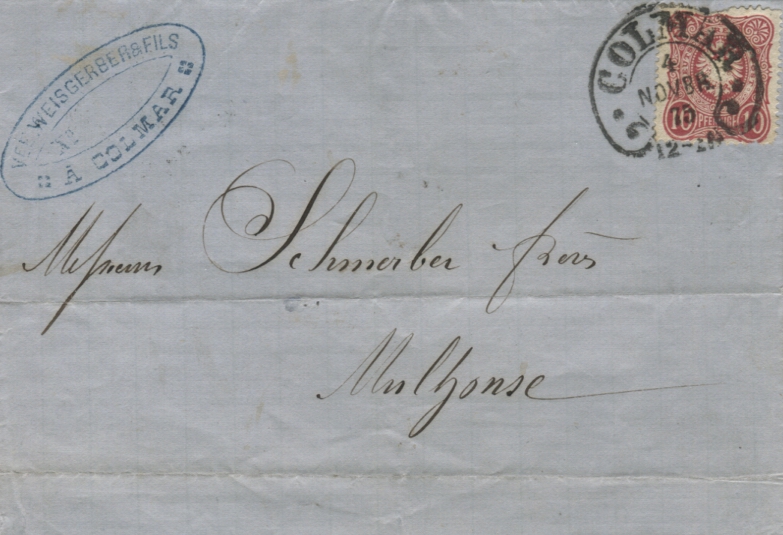 VEUVE WEISGERBER & FILS
À COLMAR
COLMAR
4
NOVBR
75
12-1N
10 PFENNIGE 10
Messieurs Schmerber frères
Mulhouse